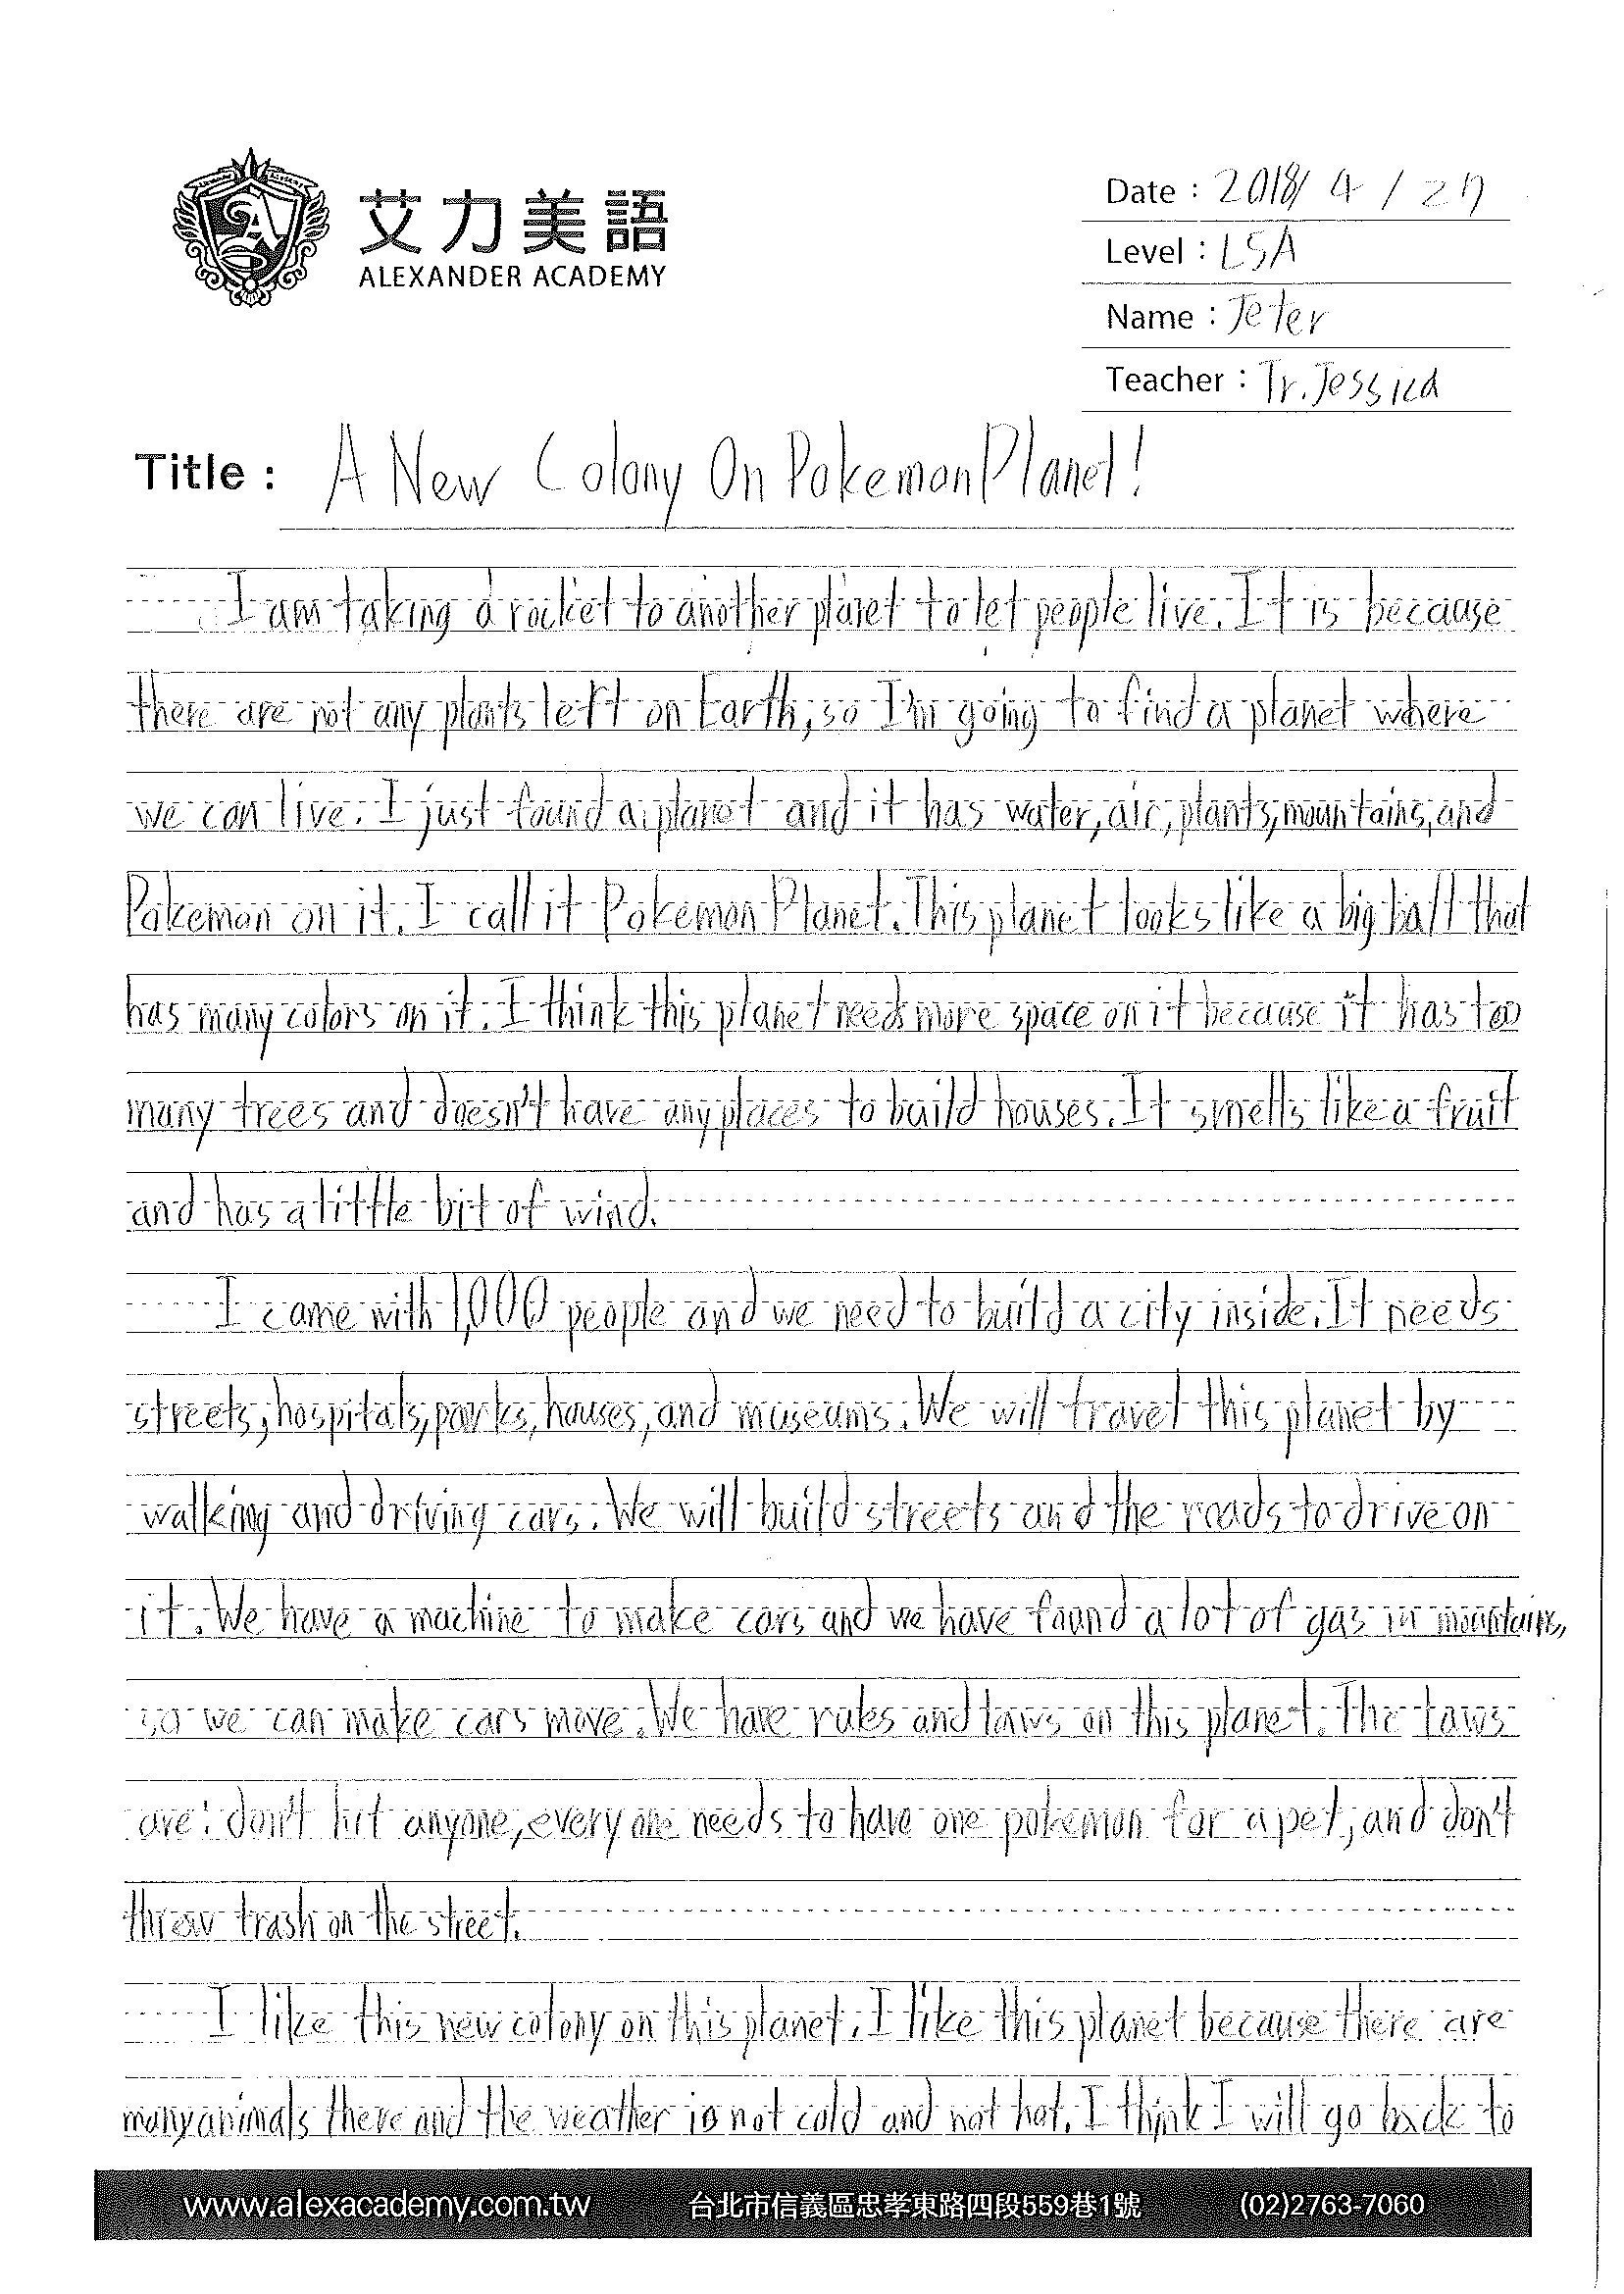 艾力美語
ALEXANDER ACADEMY
Date : 2018/ 4 / 27
Level : LSA
Name : Jeter
Teacher : Tr. Jessica
Title : A New Colony On Pokemon Planet!
I am taking a rocket to another planet to let people live. It is because
there are not any plants left on Earth, so I'm going to find a planet where
we can live. I just found a planet and it has water, air, plants, mountains, and
Pokemon on it. I call it Pokemon Planet. This planet looks like a big ball that
has many colors on it. I think this planet needs more space on it because it has too
many trees and doesn't have any places to build houses. It smells like a fruit
and has a little bit of wind.
I came with 1,000 people and we need to build a city inside. It needs
streets, hospitals, parks, houses, and museums. We will travel this planet by
walking and driving cars. We will build streets and the roads to drive on
it. We have a machine to make cars and we have found a lot of gas in mountains,
so we can make cars move. We have rules and laws on this planet. The laws
are: don't hit anyone, everyone needs to have one pokemon for a pet, and don't
throw trash on the street.
I like this new colony on this planet. I like this planet because there are
many animals there and the weather is not cold and not hot. I think I will go back to
www.alexacademy.com.tw 台北市信義區忠孝東路四段559巷1號 (02)2763-7060